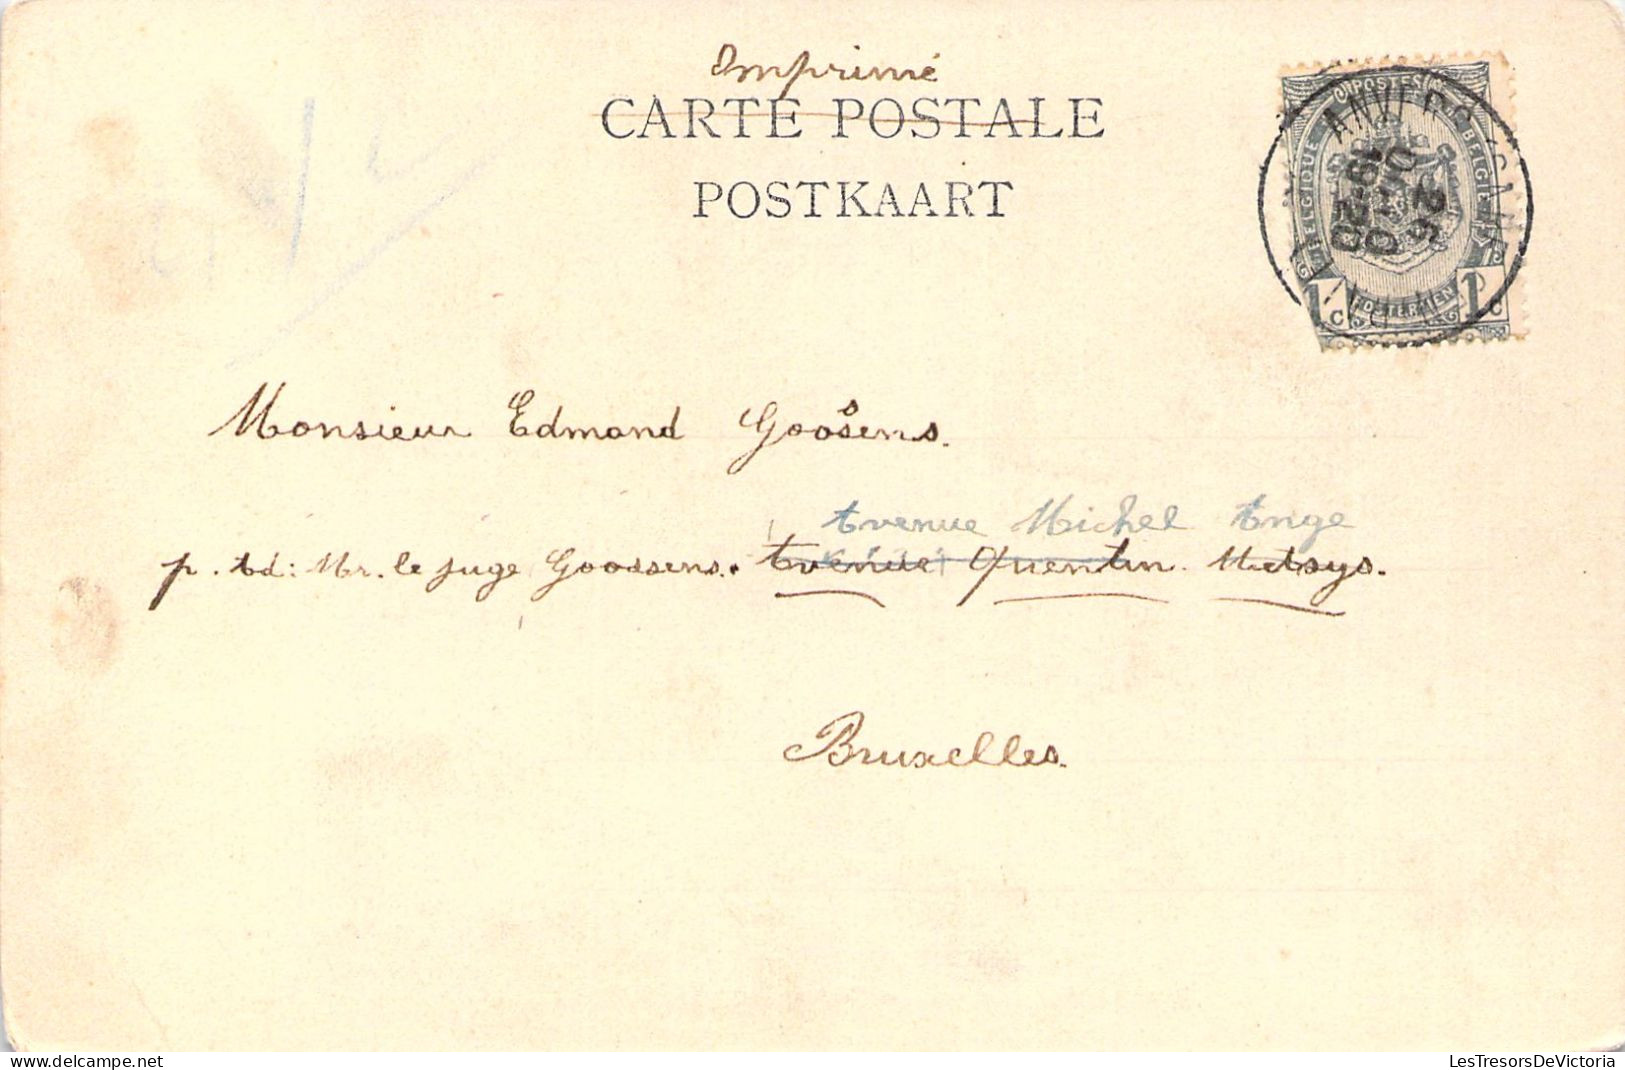 Imprimé
CARTE POSTALE
POSTKAART
POSTES
BELGIQUE
BELGIE
POSTERIJEN
1c 1c
ANVERS
26
19-20
Monsieur Edmond Goossens.
Avenue Michel Ange
p. Ad: Mr. le juge Goossens. Avenue Quentin Metsys.
Bruxelles.
delcampe.net
LesTresorsDeVictoria